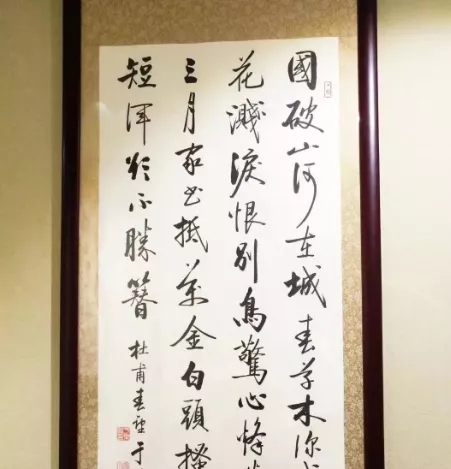 國破山河在城春草木深
花濺淚恨別鳥驚心烽
三月家書抵萬金白頭搔
短渾欲不勝簪
杜甫春望于